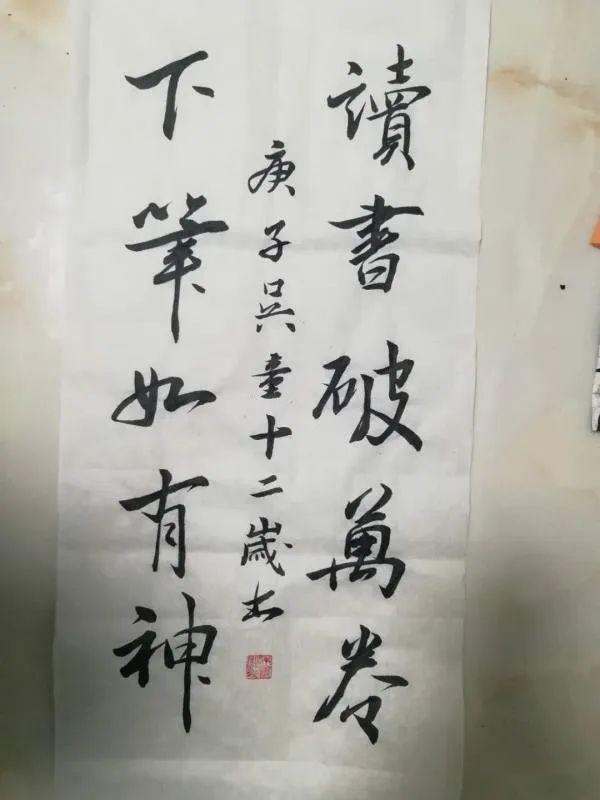 讀書破萬卷
下筆如有神
庚子吳童十二歲书